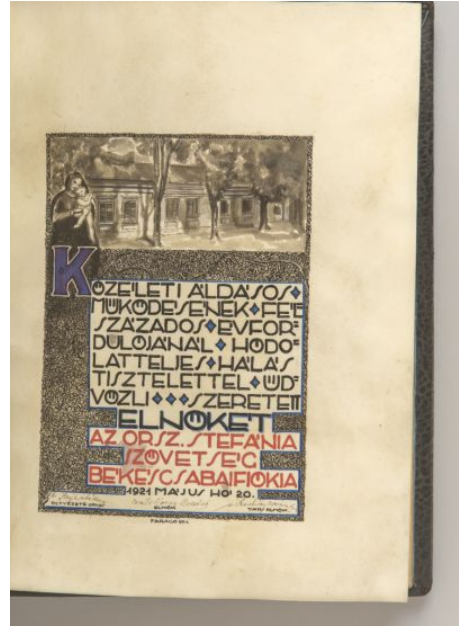 KÖZÉLETI ÁLDÁSOS
MŰKÖDÉSÉNEK FÉL
SZÁZADOS ÉVFOR=
DULÓJÁNÁL HÓDO=
LATTELJES HÁLÁS
TISZTELETTEL ÜD=
VÖZLI SZERETETT
ELNÖKÉT
AZ ORSZ. STEFÁNIA
SZÖVETSÉG
BÉKÉSCSABAI FIÓKJA
1921 MÁJUS HÓ 20.
ELNÖK
TÁRS ELNÖK